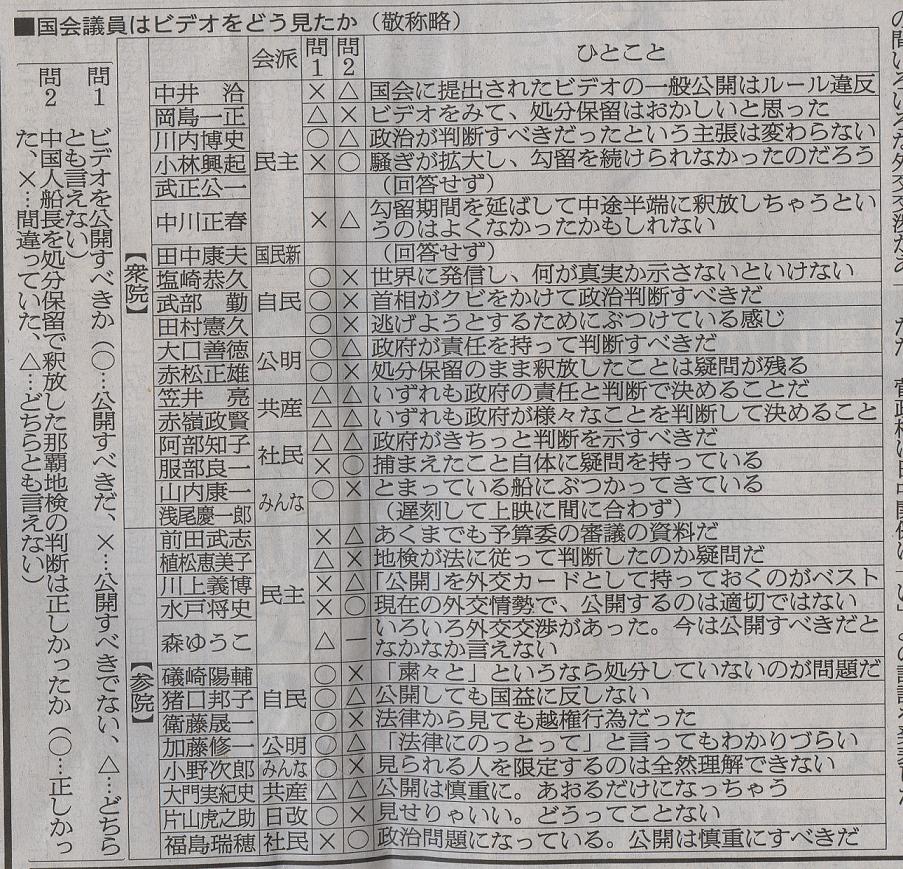 ■国会議員はビデオをどう見たか（敬称略）
会派 問1 問2 ひとこと
【衆院】
中井　洽 民主 × △ 国会に提出されたビデオの一般公開はルール違反
岡島一正 △ × ビデオをみて、処分保留はおかしいと思った
川内博史 ○ △ 政治が判断すべきだったという主張は変わらない
小林興起 × ○ 騒ぎが拡大し、勾留を続けられなかったのだろう
武正公一 （回答せず）
中川正春 × △ 勾留期間を延ばして中途半端に釈放しちゃうとい
うのはよくなかったかもしれない
田中康夫 国民新 （回答せず）
塩崎恭久 自民 ○ × 世界に発信し、何が真実か示さないといけない
武部　勤 ○ × 首相がクビをかけて政治判断すべきだ
田村憲久 ○ × 逃げようとするためにぶつけている感じ
大口善徳 公明 ○ △ 政府が責任を持って判断すべきだ
赤松正雄 ○ × 処分保留のまま釈放したことは疑問が残る
笠井　亮 共産 △ △ いずれも政府の責任と判断で決めることだ
赤嶺政賢 △ △ いずれも政府が様々なことを判断して決めること
阿部知子 社民 △ △ 政府がきちっと判断を示すべきだ
服部良一 × ○ 捕まえたこと自体に疑問を持っている
山内康一 みんな ○ × とまっている船にぶつかってきている
浅尾慶一郎 （遅刻して上映に間に合わず）
【参院】
前田武志 民主 × △ あくまでも予算委の審議の資料だ
植松恵美子 △ × 地検が法に従って判断したのか疑問だ
川上義博 × △ 「公開」を外交カードとして持っておくのがベスト
水戸将史 × ○ 現在の外交情勢で、公開するのは適切ではない
森ゆうこ △ ― いろいろ外交交渉があった。今は公開すべきだと
なかなか言えない
礒崎陽輔 自民 ○ × 「粛々と」というなら処分していないのが問題だ
猪口邦子 ○ △ 公開しても国益に反しない
衛藤晟一 ○ × 法律から見ても越権行為だった
加藤修一 公明 ○ △ 「法律にのっとって」と言ってもわかりづらい
小野次郎 みんな ○ × 見られる人を限定するのは全然理解できない
大門実紀史 共産 △ △ 公開は慎重に。あおるだけになっちゃう
片山虎之助 日改 ○ × 見せりゃいい。どうってことない
福島瑞穂 社民 × ○ 政治問題になっている。公開は慎重にすべきだ
問1　ビデオを公開すべきか（○…公開すべきだ、×…公開すべきでない、△…どちら
とも言えない）
問2　中国人船長を処分保留で釈放した那覇地検の判断は正しかったか（○…正しかっ
た、×…間違っていた、△…どちらとも言えない）